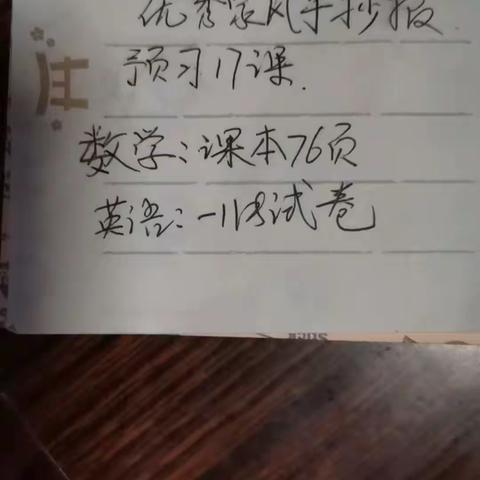 优秀家风手抄报
预习17课.
数学:课本76页
英语:一张试卷